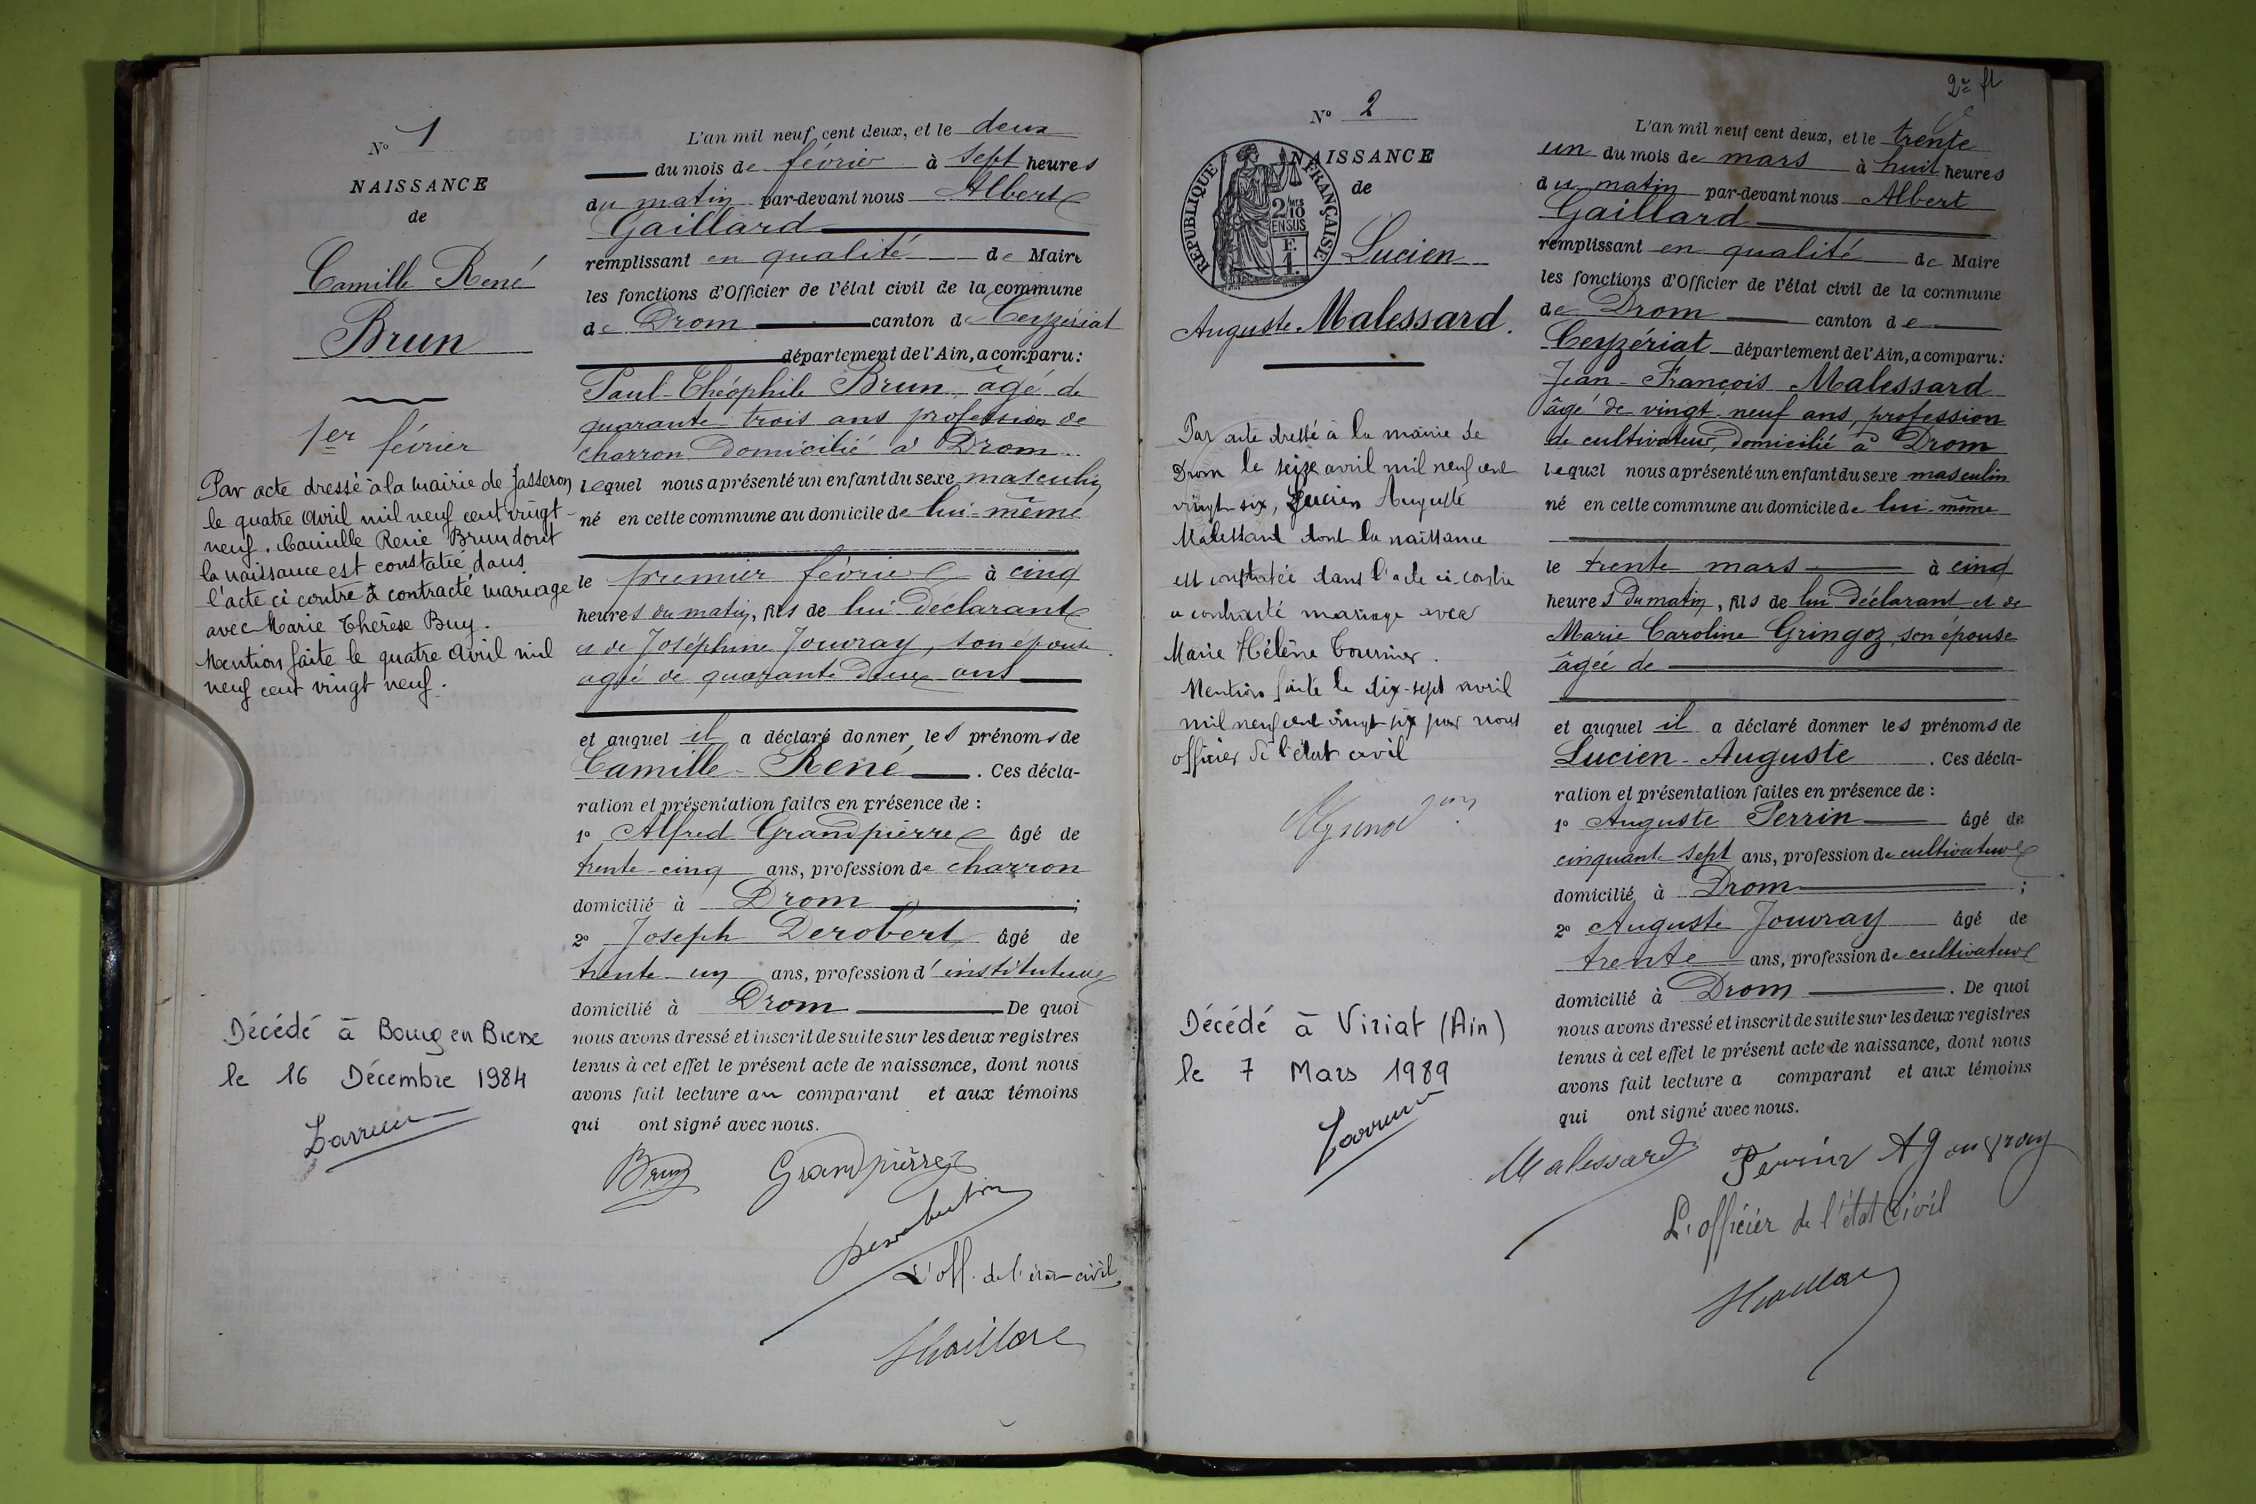 N° 1
NAISSANCE
de
Camille René
Brun
1er février
Par acte dressé à la mairie de Jasseron
le quatre Avril mil neuf cent vingt-
neuf. Camille René Brun dont
la naissance est constatée dans
l'acte ci contre à contracté mariage
avec Marie Thérèse Buy.
Mention faite le quatre Avril mil
neuf cent vingt neuf.
Décédé à Bourg en Bresse
le 16 Décembre 1984
L'an mil neuf cent deux, et le deux
du mois de février à sept heures
du matin par-devant nous Albert
Gaillard
remplissant en qualité de Maire
les fonctions d'Officier de l'état civil de la commune
de Drom canton de Ceyzériat
département de l'Ain, a comparu:
Paul-Théophile Brun, âgé de
quarante-trois ans profession de
charron domicilié à Drom
lequel nous a présenté un enfant du sexe masculin
né en cette commune au domicile de lui-même
le premier février à cinq
heures du matin, fils de lui déclarant
et de Joséphine Jouvray, son épouse
agée de quarante deux ans
et auquel il a déclaré donner les prénoms de
Camille-René. Ces décla-
ration et présentation faites en présence de :
1° Alfred Grandpierre âgé de
trente-cinq ans, profession de charron
domicilié à Drom ;
2° Joseph Derobert âgé de
trente-un ans, profession d'instituteur
domicilié à Drom De quoi
nous avons dressé et inscrit de suite sur les deux registres
tenus à cet effet le présent acte de naissance, dont nous
avons fait lecture au comparant et aux témoins
qui ont signé avec nous.
Brun Grandpierre
L'off. de l'état-civil
Gaillard
2e ft
N° 2
NAISSANCE
de
RÉPUBLIQUE FRANÇAISE
2/10 EN SUS
F.
1.
Lucien
Auguste Malessard.
Par acte dressé à la mairie de
Drom le seize avril mil neuf cent
vingt-six, Lucien Auguste
Malessard dont la naissance
est constatée dans l'acte ci-contre
a contracté mariage avec
Marie Hélène Tournier.
Mention faite le dix-sept avril
mil neuf cent vingt six par nous
officier de l'état civil
Décédé à Viriat (Ain)
le 7 Mars 1989
L'an mil neuf cent deux, et le trente
un du mois de mars à huit heures
du matin par-devant nous Albert
Gaillard
remplissant en qualité de Maire
les fonctions d'Officier de l'état civil de la commune
de Drom canton de
Ceyzériat département de l'Ain, a comparu:
Jean-François Malessard
âgé de vingt-neuf ans, profession
de cultivateur, domicilié à Drom
lequel nous a présenté un enfant du sexe masculin
né en cette commune au domicile de lui-même
le trente mars à cinq
heures du matin, fils de lui déclarant et de
Marie Caroline Gringoz, son épouse
âgée de
et auquel il a déclaré donner les prénoms de
Lucien-Auguste. Ces décla-
ration et présentation faites en présence de :
1° Auguste Perrin âgé de
cinquante sept ans, profession de cultivateur
domicilié à Drom ;
2° Auguste Jouvray âgé de
trente ans, profession de cultivateur
domicilié à Drom. De quoi
nous avons dressé et inscrit de suite sur les deux registres
tenus à cet effet le présent acte de naissance, dont nous
avons fait lecture a comparant et aux témoins
qui ont signé avec nous.
Malessard Perrin A Jouvray
L'officier de l'état civil
Gaillard